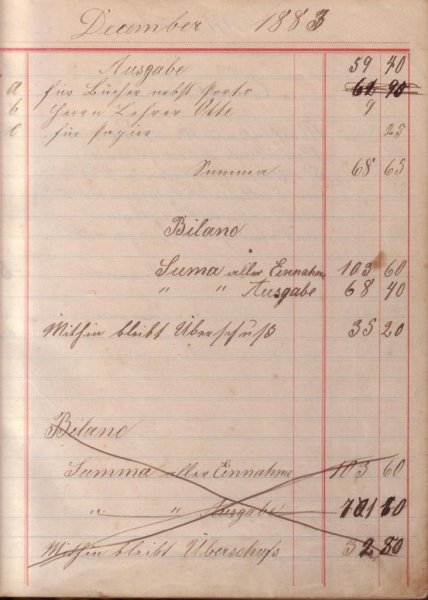 December 1883
Ausgabe 59 40
a für Bücher nebst Porto 62 90
b Herrn Lehrer Otte 9
c für Papier 25
Summa 68 65
Bilanc
Suma aller Einnahme 103 60
" " Ausgabe 68 40
Mithin bleibt Überschuß 35 20
Bilanc
Summa aller Einnahme 103 60
" " Ausgabe
Mithin bleibt Überschuss 32 80